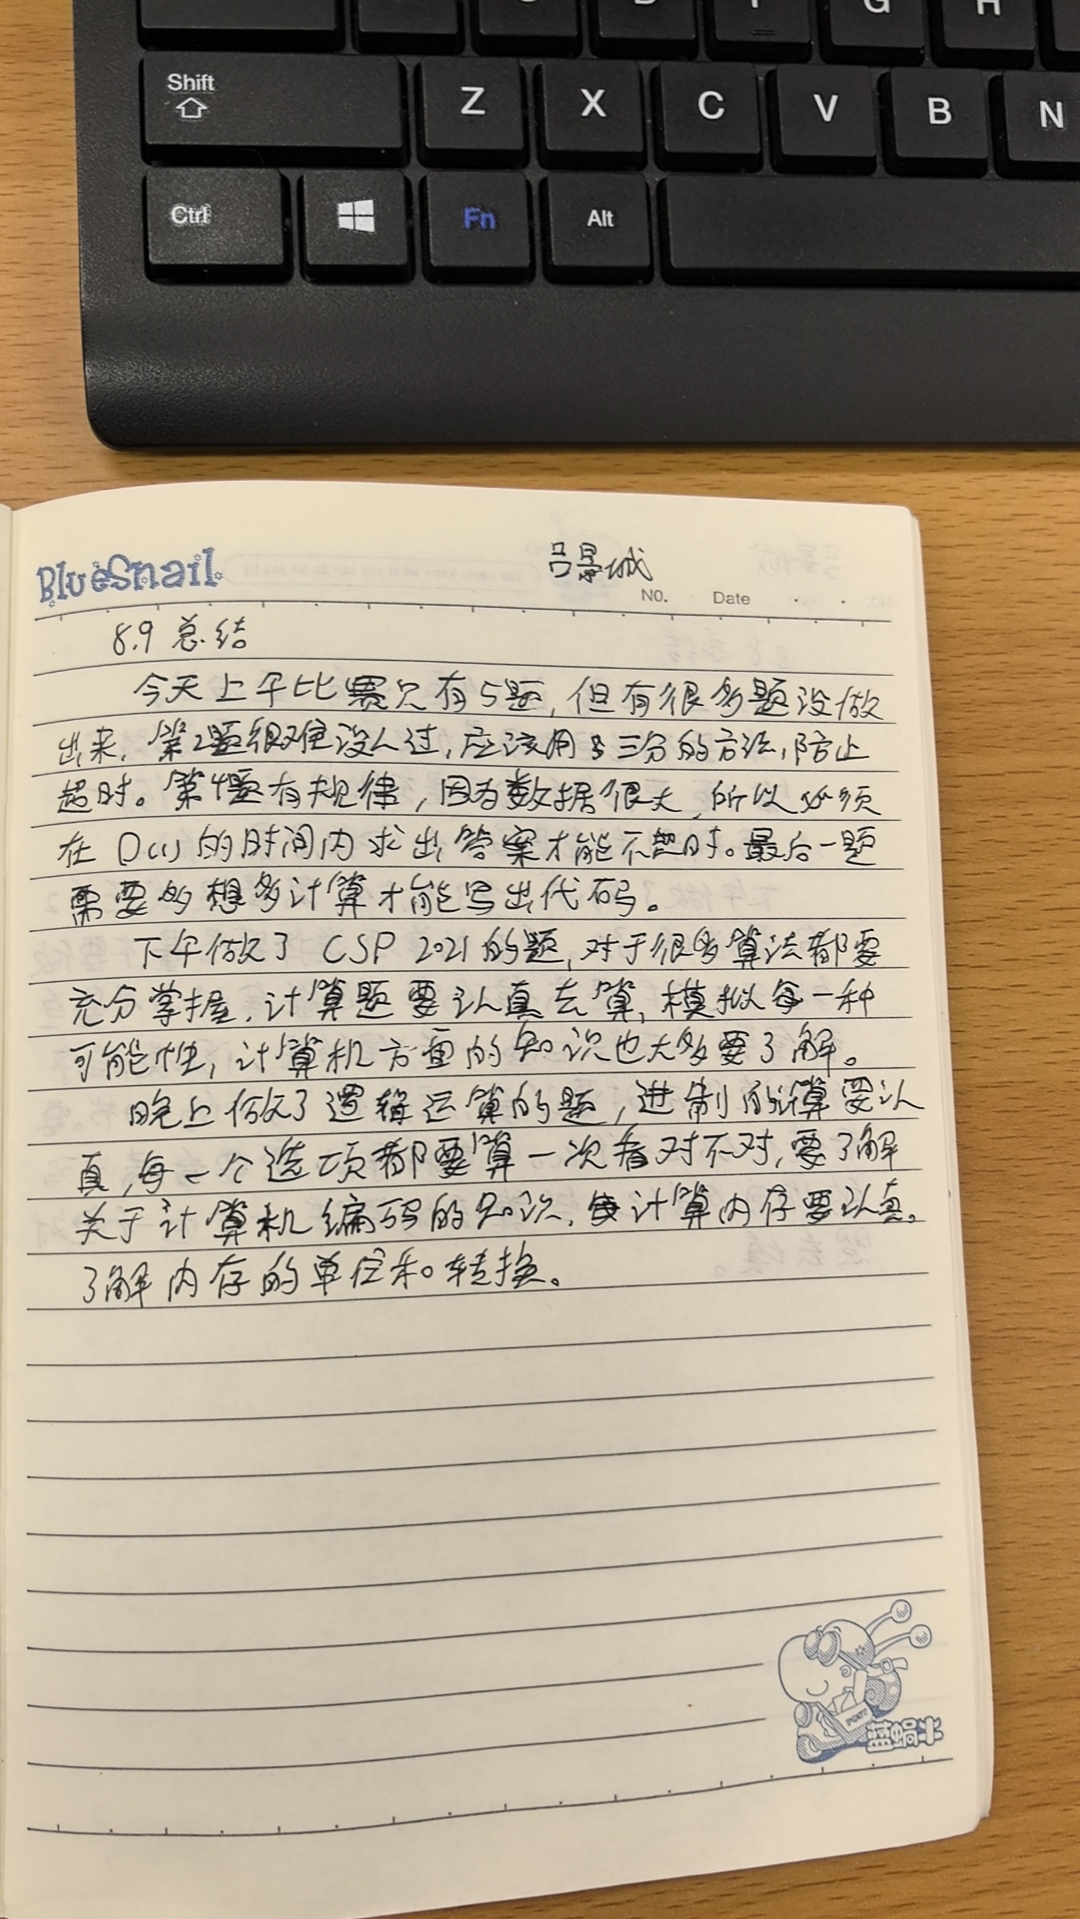 Shift
Z X C V B N
Ctrl Fn Alt
BlueSnail
吕景城
NO. Date
8.9 总结
今天上午比赛只有5题,但有很多题没做
出来,第2题很难没人过,应该用三分的方法,防止
超时。第4题有规律,因为数据很大,所以必须
在O(1)的时间内求出答案才能不超时。最后一题
需要多想多计算才能写出代码。
下午做了 CSP 2021的题,对于很多算法都要
充分掌握,计算题要认真去算,模拟每一种
可能性,计算机方面的知识也大多要了解。
晚上做了逻辑运算的题,进制的计算要认
真,每一个选项都要算一次看对不对,要了解
关于计算机编码的知识,计算内存要认真。
了解内存的单位和转换。
POST
蓝蜗牛